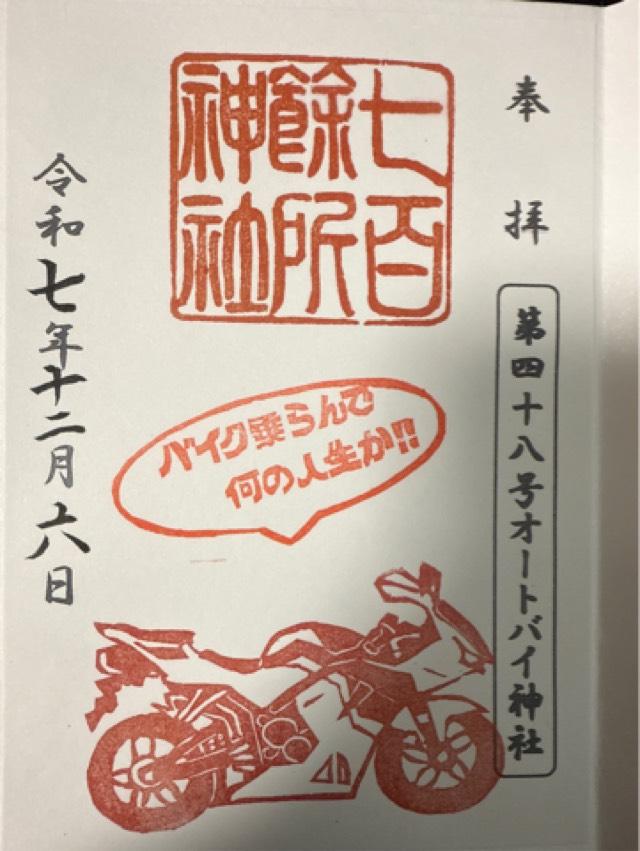 奉拝
第四十八号オートバイ神社
七百
餘所
神社
バイク乗らんで
何の人生か!!
令和七年十二月六日